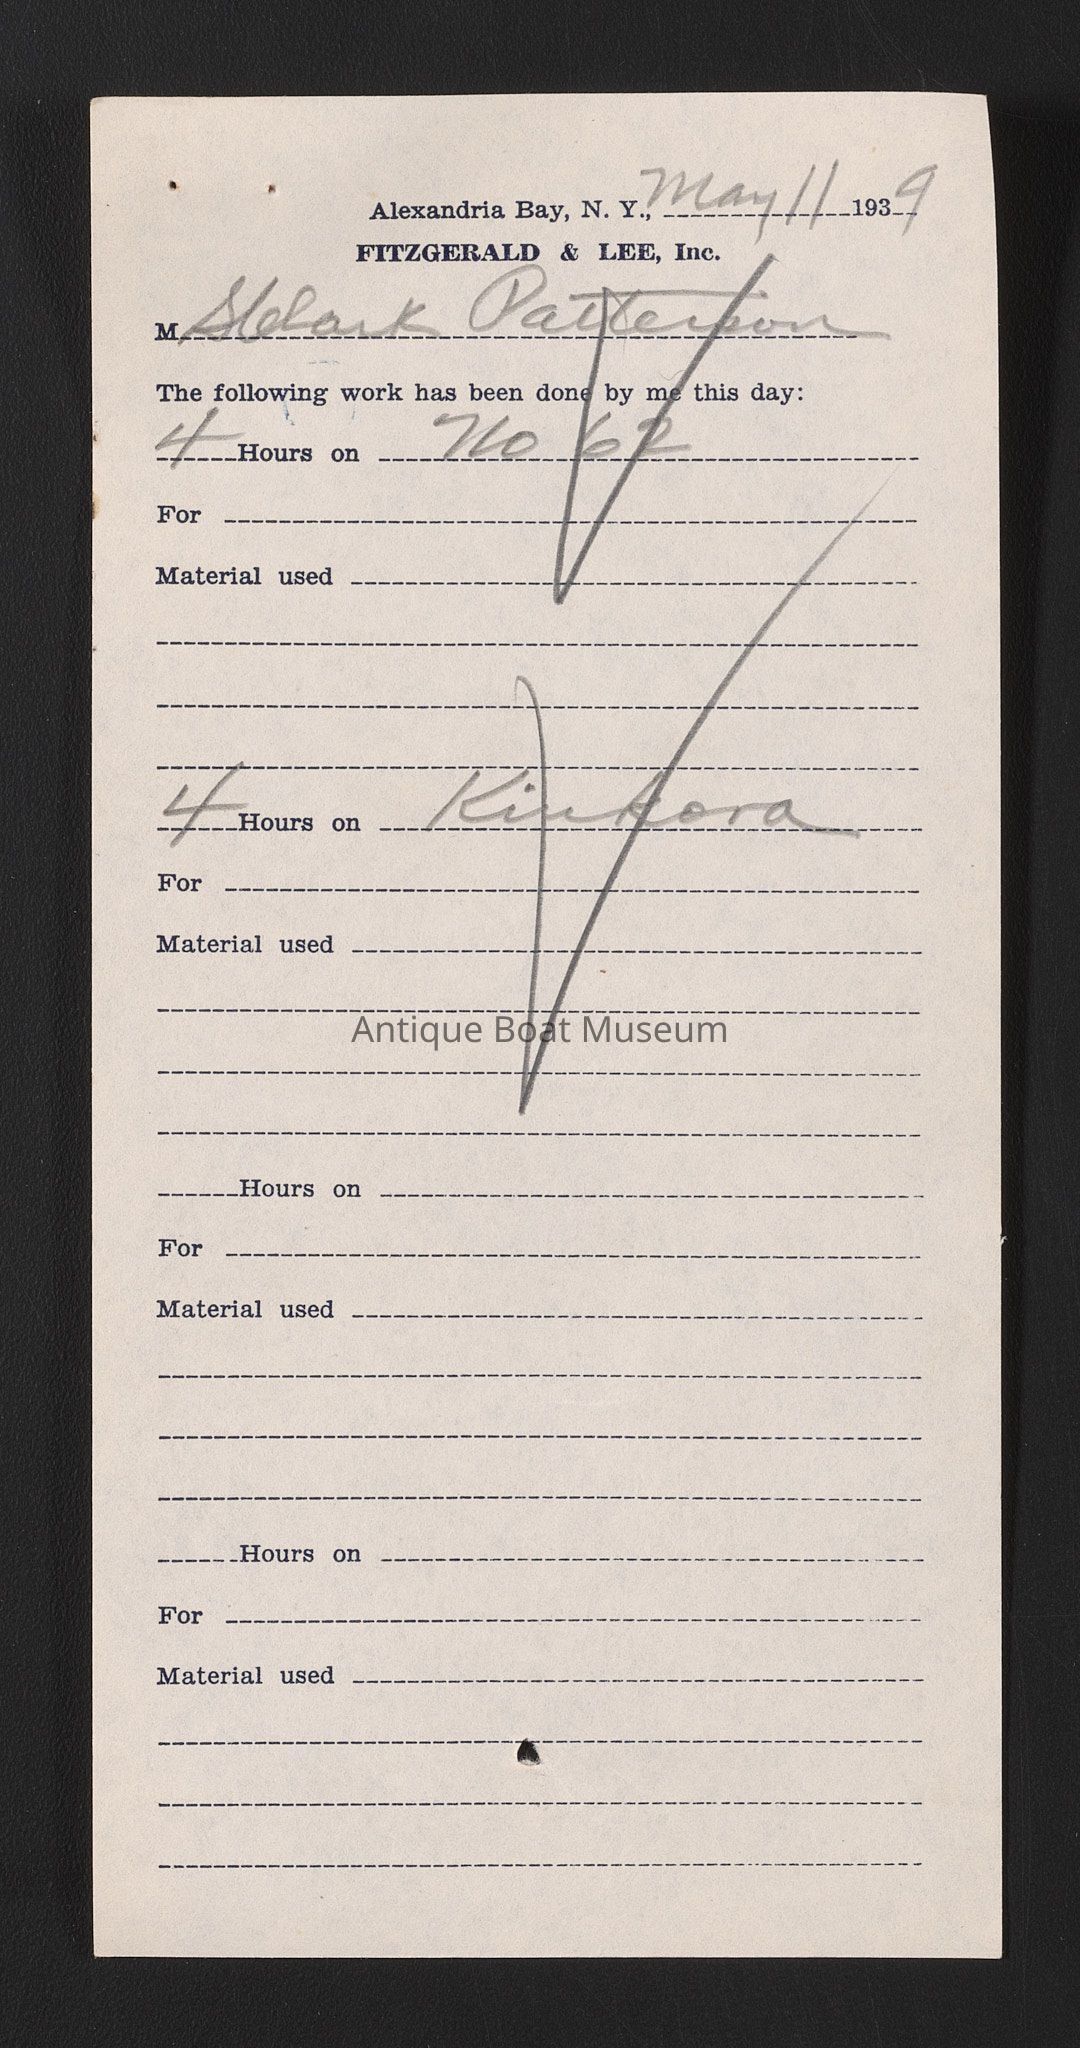 Alexandria Bay, N. Y., May 11 1939
FITZGERALD & LEE, Inc.
M Patterson
The following work has been done by me this day:
4 Hours on No 62
For
Material used
4 Hours on Kinkora
For
Material used
Antique Boat Museum
Hours on
For
Material used
Hours on
For
Material used